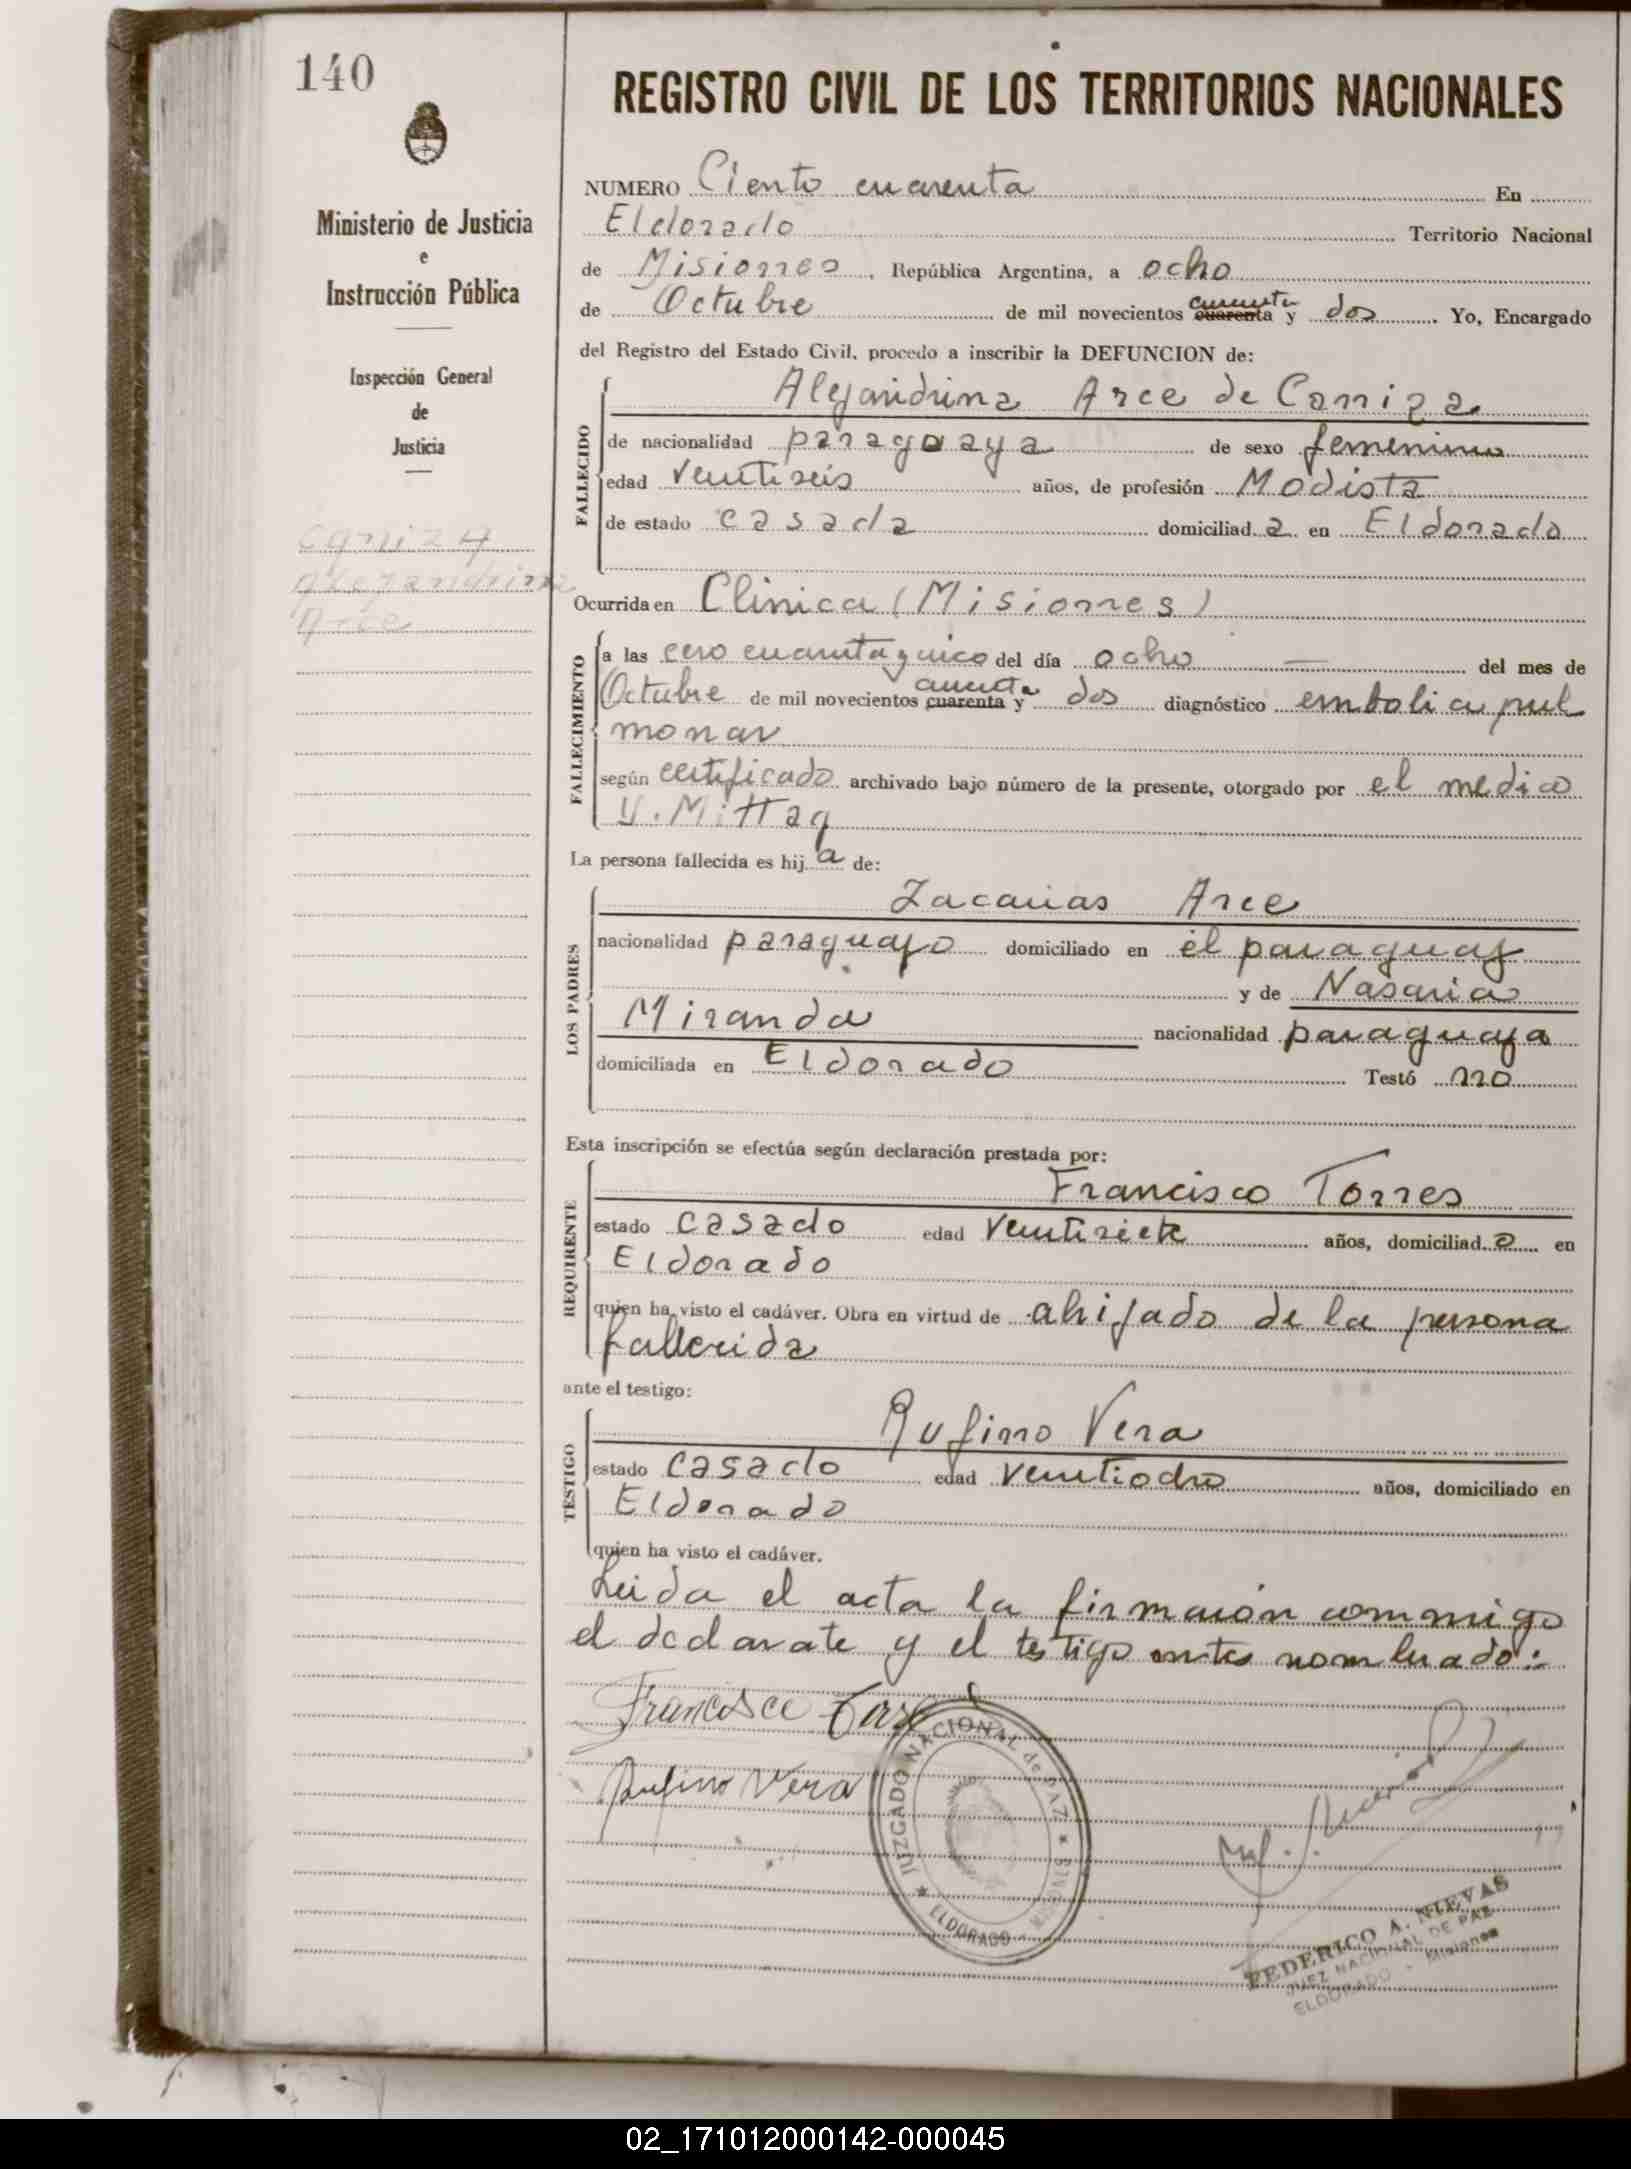 140
REGISTRO CIVIL DE LOS TERRITORIOS NACIONALES
Ministerio de Justicia
e
Instrucción Pública
Inspección General
de
Justicia
Caniza
Alejandrina
Arce
NUMERO Ciento cuarenta En
Eldorado Territorio Nacional
de Misiones, República Argentina, a ocho
de Octubre de mil novecientos cuarenta cuarenta y dos. Yo, Encargado
del Registro del Estado Civil, procedo a inscribir la DEFUNCION de:
FALLECIDO
Alejandrina Arce de Caniza
de nacionalidad paraguaya de sexo femenino
edad ventiseis años, de profesión Modista
de estado casada domiciliad a en Eldorado
Ocurrida en Clinica (Misiones)
FALLECIMIENTO
a las cero cuarenta y cinco del día ocho — del mes de
Octubre de mil novecientos cuarenta cuarenta y dos diagnóstico embolia pul
monar
según certificado archivado bajo número de la presente, otorgado por el medico
Mittag
La persona fallecida es hij a de:
LOS PADRES
Zacarias Arce
nacionalidad paraguayo domiciliado en el paraguay
y de Nasaria
Miranda nacionalidad paraguaya
domiciliada en Eldorado Testó no
Esta inscripción se efectúa según declaración prestada por:
REQUIRENTE
Francisco Torres
estado casado edad ventisiete años, domiciliad o en
Eldorado
quien ha visto el cadáver. Obra en virtud de ahijado de la persona
fallecida
ante el testigo:
TESTIGO
Rufino Vera
estado casado edad ventiocho años, domiciliado en
Eldorado
quien ha visto el cadáver.
Leida el acta la firmaron conmigo
el declarate y el testigo antes nombrado:-
Francisco Torres
Rufino Vera
JUZGADO NACIONAL de PAZ ★ ELDORADO ★
FEDERICO A. NIEVAS
JUEZ NACIONAL DE PAZ
ELDORADO - Misiones
02_171012000142-000045